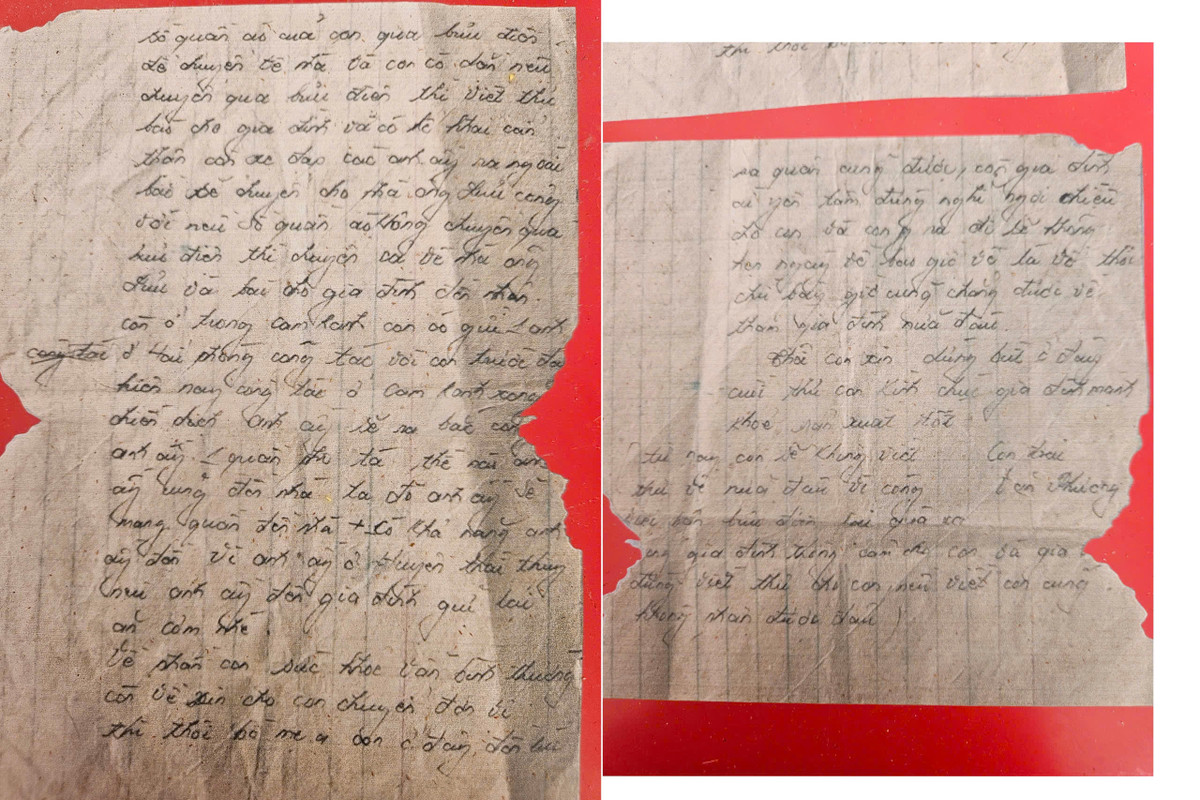 số quần áo của con qua bưu điện
để chuyển về nhà và con có dặn nếu
chuyển qua bưu điện thì viết thư
báo cho gia đình và có kê khai cẩn
thận còn xe đạp các anh ấy ra ngoài
báo sẽ chuyển cho nhà ông Lưu cùng
với nếu số quần áo không chuyển qua
bưu điện thì chuyển cả về nhà ông
Lưu và báo cho gia đình đến nhận.
còn ở trong cam Ranh con có gửi 1 anh
công tác ở Hải phòng công tác với con trước đây
hiện nay công tác ở Cam Ranh xong
chiến dịch anh ấy sẽ ra bắc còn
anh ấy 1 quần thế nào anh
ấy cũng đến nhà ta do anh ấy sẽ
mang quần đến nhà + có khả năng anh
ấy đến vì anh ấy ở Huyện thái thụy
nếu anh ấy đến gia đình giữ lại
ăn cơm nhé.
Về phần con sức khỏe vẫn bình thường
còn về xin cho con chuyển đơn vị
thì thôi bố mẹ ạ con ở đây đến lúc
thì thôi
ra quân cũng được, còn gia đình
cứ yên tâm đừng nghĩ ngợi nhiều
do con và con ra đi sẽ không
hẹn ngày về bao giờ về là về thôi
chứ bây giờ cũng chẳng được về
thăm gia đình nữa đâu.
Thôi con xin dừng bút ở đây
cuối thư con kính chúc gia đình mạnh
khỏe, sản xuất tốt
từ nay con sẽ không viết Con trai
thư về nữa đâu vì công Phương
bưu điện lại quá xa
gia đình thông cảm cho con và gia
đừng viết thư cho con nếu viết con cũng
không nhận được đâu!